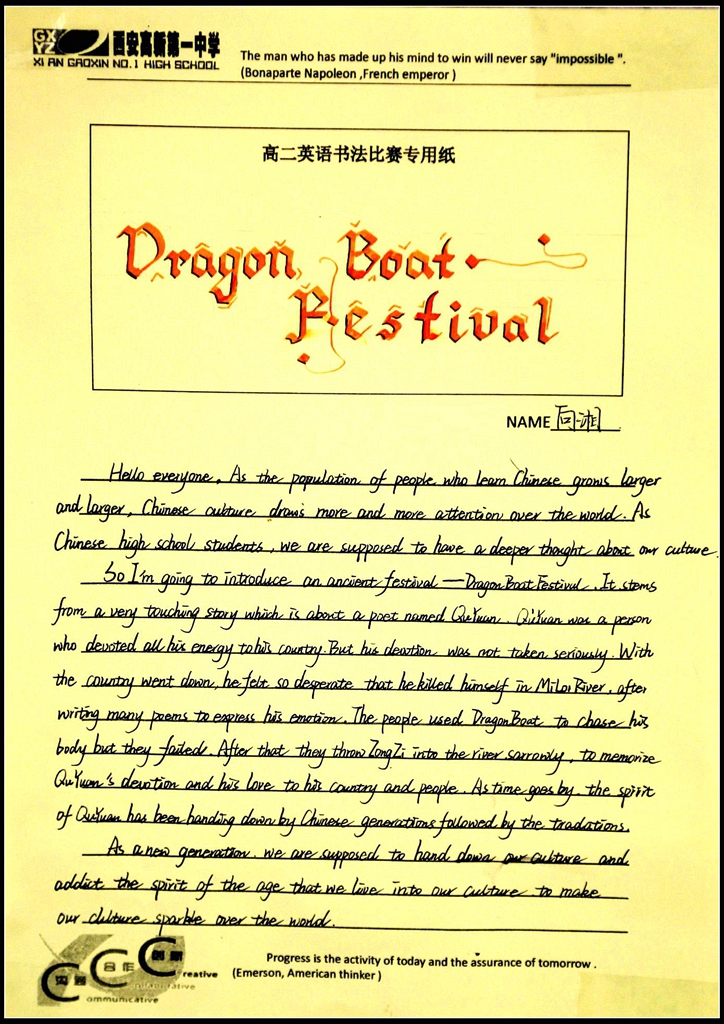 GX
YZ
西安高新第一中学
XI AN GAOXIN NO.1 HIGH SCHOOL
The man who has made up his mind to win will never say "impossible ".
(Bonaparte Napoleon ,French emperor )
高二英语书法比赛专用纸
Dragon Boat
Festival
NAME 向湘
Hello everyone. As the population of people who learn Chinese grows larger
and larger, Chinese culture draws more and more attention over the world. As
Chinese high school students, we are supposed to have a deeper thought about our culture.
So I'm going to introduce an ancient festival — Dragon Boat Festival. It stems
from a very touching story which is about a poet named QuYuan. QuYuan was a person
who devoted all his energy to his country. But his devotion was not taken seriously. With
the country went down, he felt so desperate that he killed himself in MiLoi River, after
writing many poems to express his emotion. The people used DragonBoat to chase his
body but they failed. After that they throw ZongZi into the river sarrowly, to memorize
QuYuan's devotion and his love to his country and people. As time goes by, the spirit
of QuYuan has been handing down by Chinese generations followed by the tradations.
As a new generation, we are supposed to hand down our culture and
addict the spirit of the age that we live into our culture to make
our culture sparkle over the world.
实践 合作 创新
Creative
Collaborative
Communicative
Progress is the activity of today and the assurance of tomorrow .
(Emerson, American thinker )